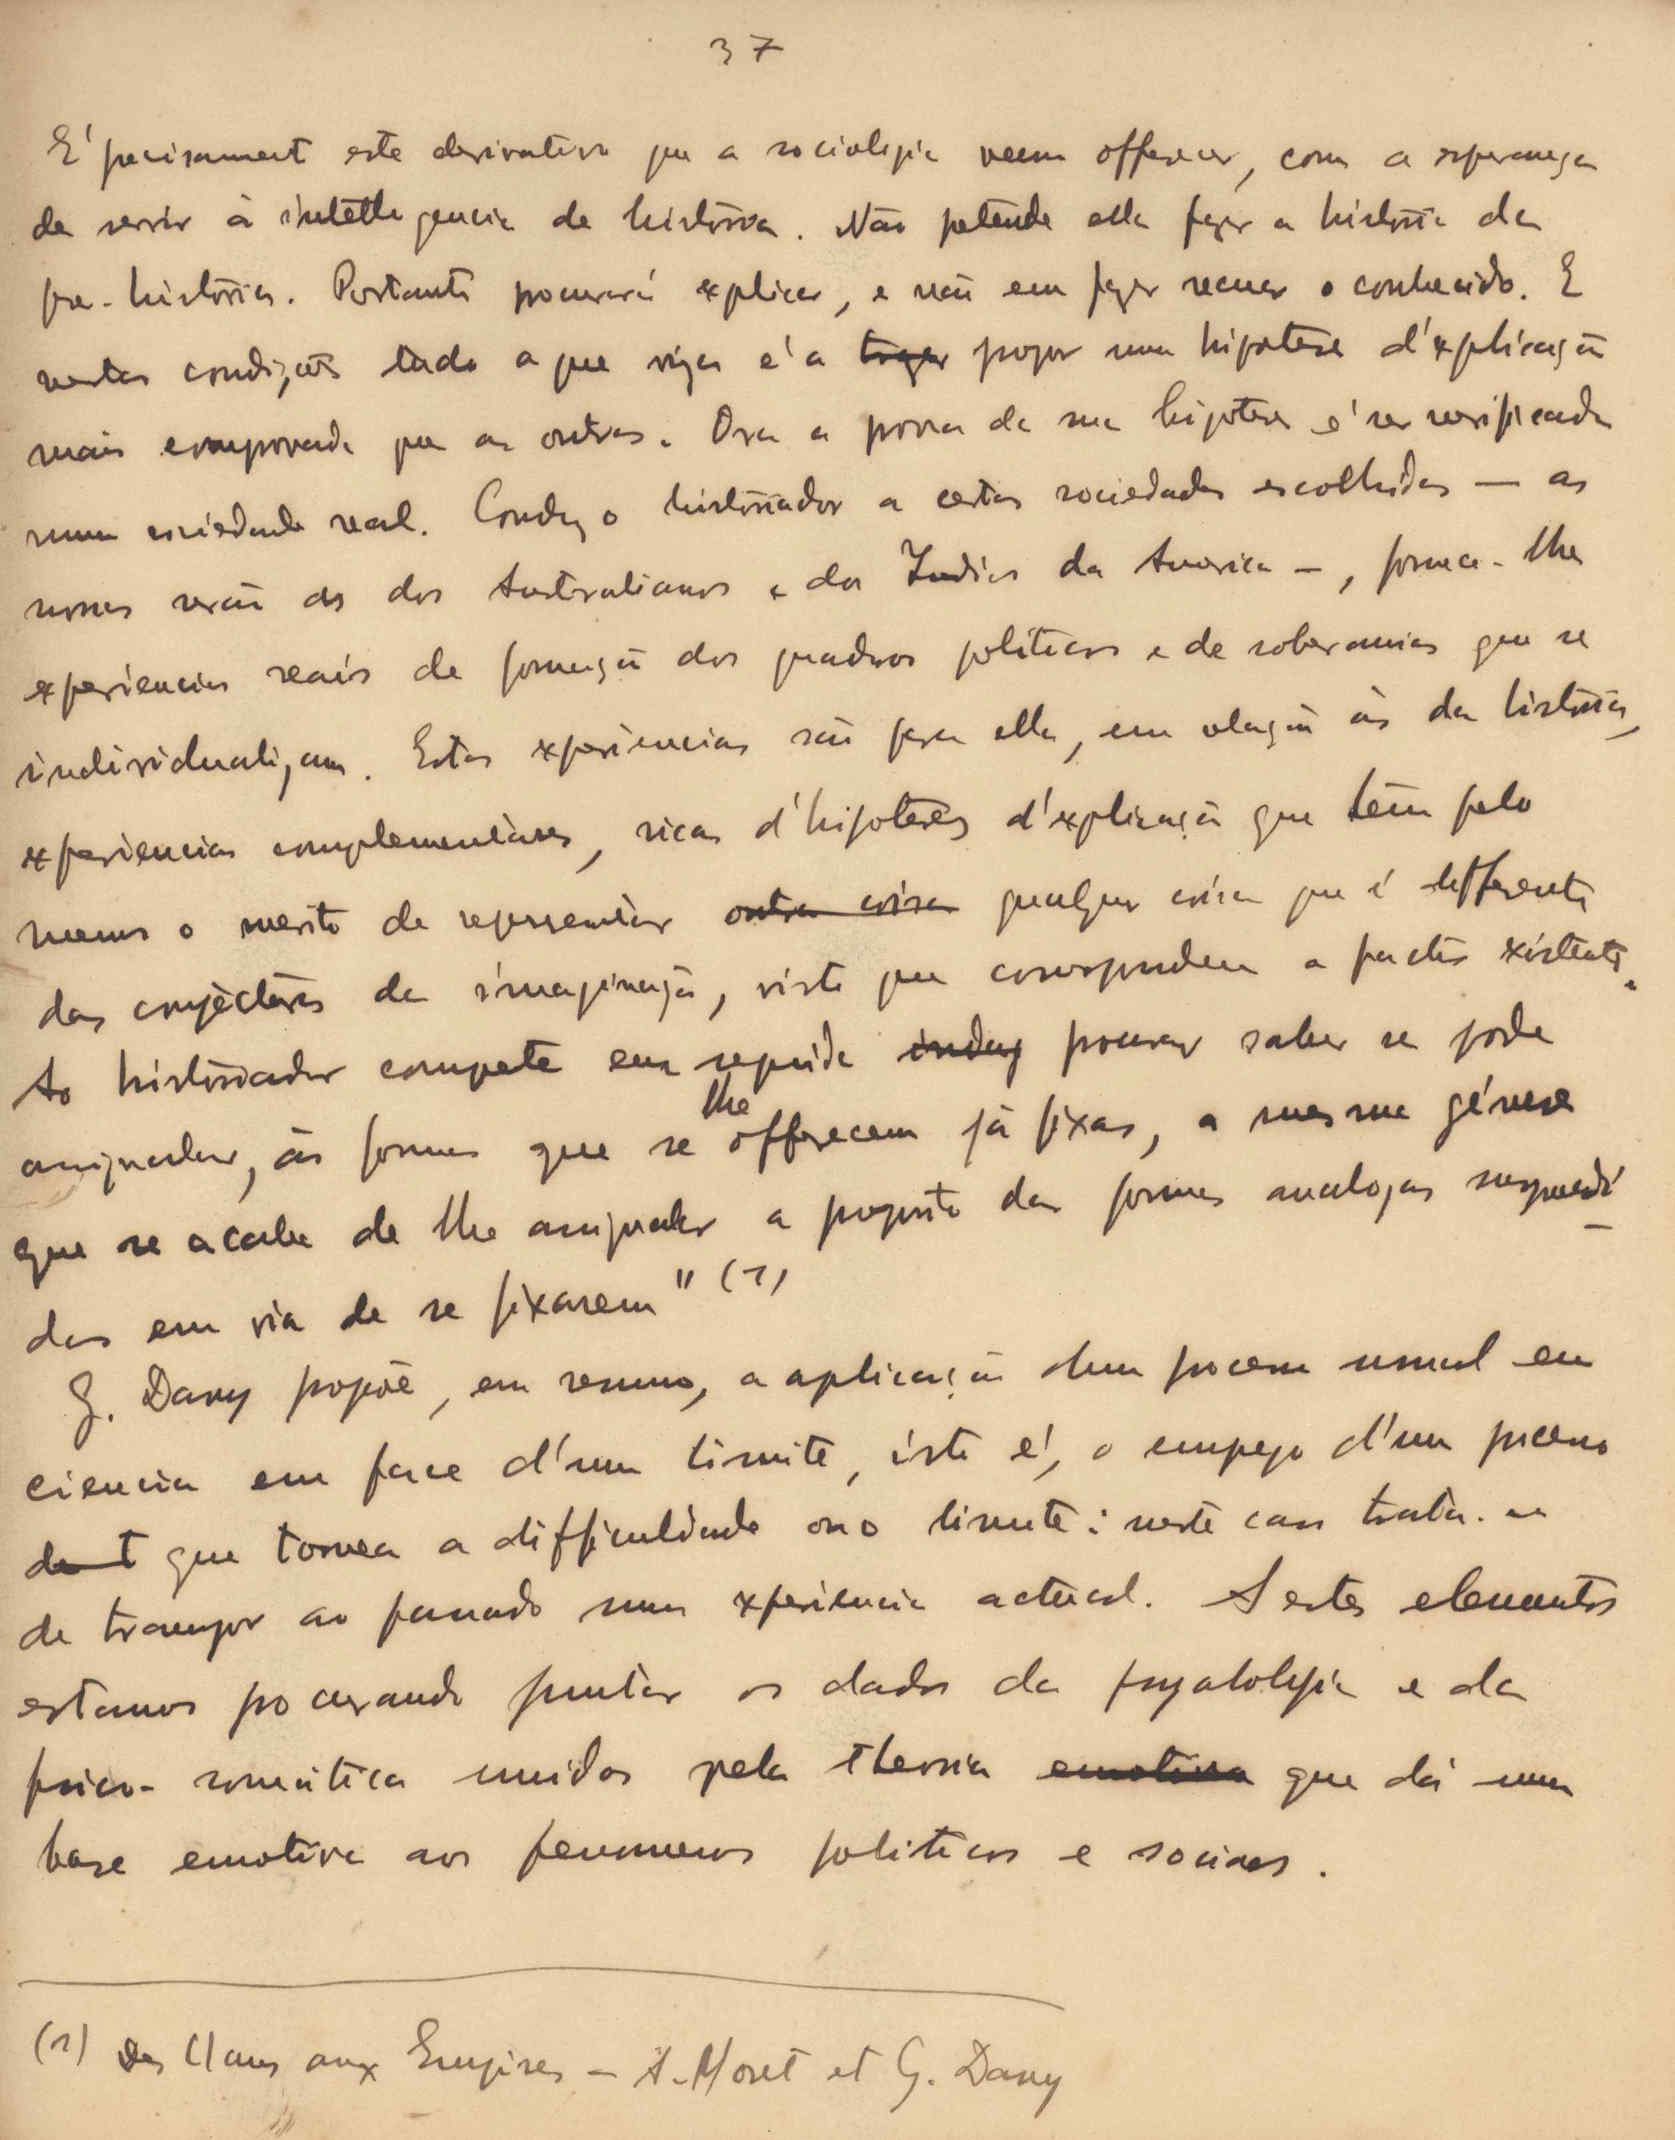 37
É precisament este derivativo que a sociologia veem offerecer, com a esperança
de servir á intelligencia da história. Não petende ella fazer a história da
pre-história. Portanto procurará explicar, e não em fazer recuar o conhecido. E
nestas condições tudo a que visa é a trazer propor uma hipotese d'explicação
mais comprovada que as outras. Ora a prova da sua hipotese é ser verificada
numa sociedade real. Conduz o historiador a certas sociedades escolhidas — as
nossas serão as dos Australianos e dos Indios da America —, fornece-lhe
experiencias reais de formação dos quadros politicos e de soberanias que se
individualizam. Estas experiencias são para ella, em relação ás da história,
experiencias complementares, ricas d'hipoteses d'explicação que têm pelo
menos o merito de representar outra coisa qualquer coisa que é differente
das conjécturas da imaginação, visto que correspondem a factos existentes.
Ao historiador compete em seguida indag procurar saber se pode
assignalar, ás formas que se lhe offerecem já fixas, a mesma génese
que se acaba de lhe assignalar a proposito das formas analogas surpreendi-
das em via de se fixarem" (1)
G. Davy propõe, em resumo, a aplicação dum processo usual em
ciencia em face d'um limite, isto é, o emprego d'um processo
de t que tornea a difficuldade ou o limite: neste caso trata-se
de transpor ao passado uma experiencia actual. A estes elementos
estamos procurando juntar os dados da psycologia e da
psico-somática unidos pela theoria emotiva que dá uma
base emotiva aos fenomenos politicos e sociaes.
(1) Des Clans aux Empires – A. Moret et G. Davy